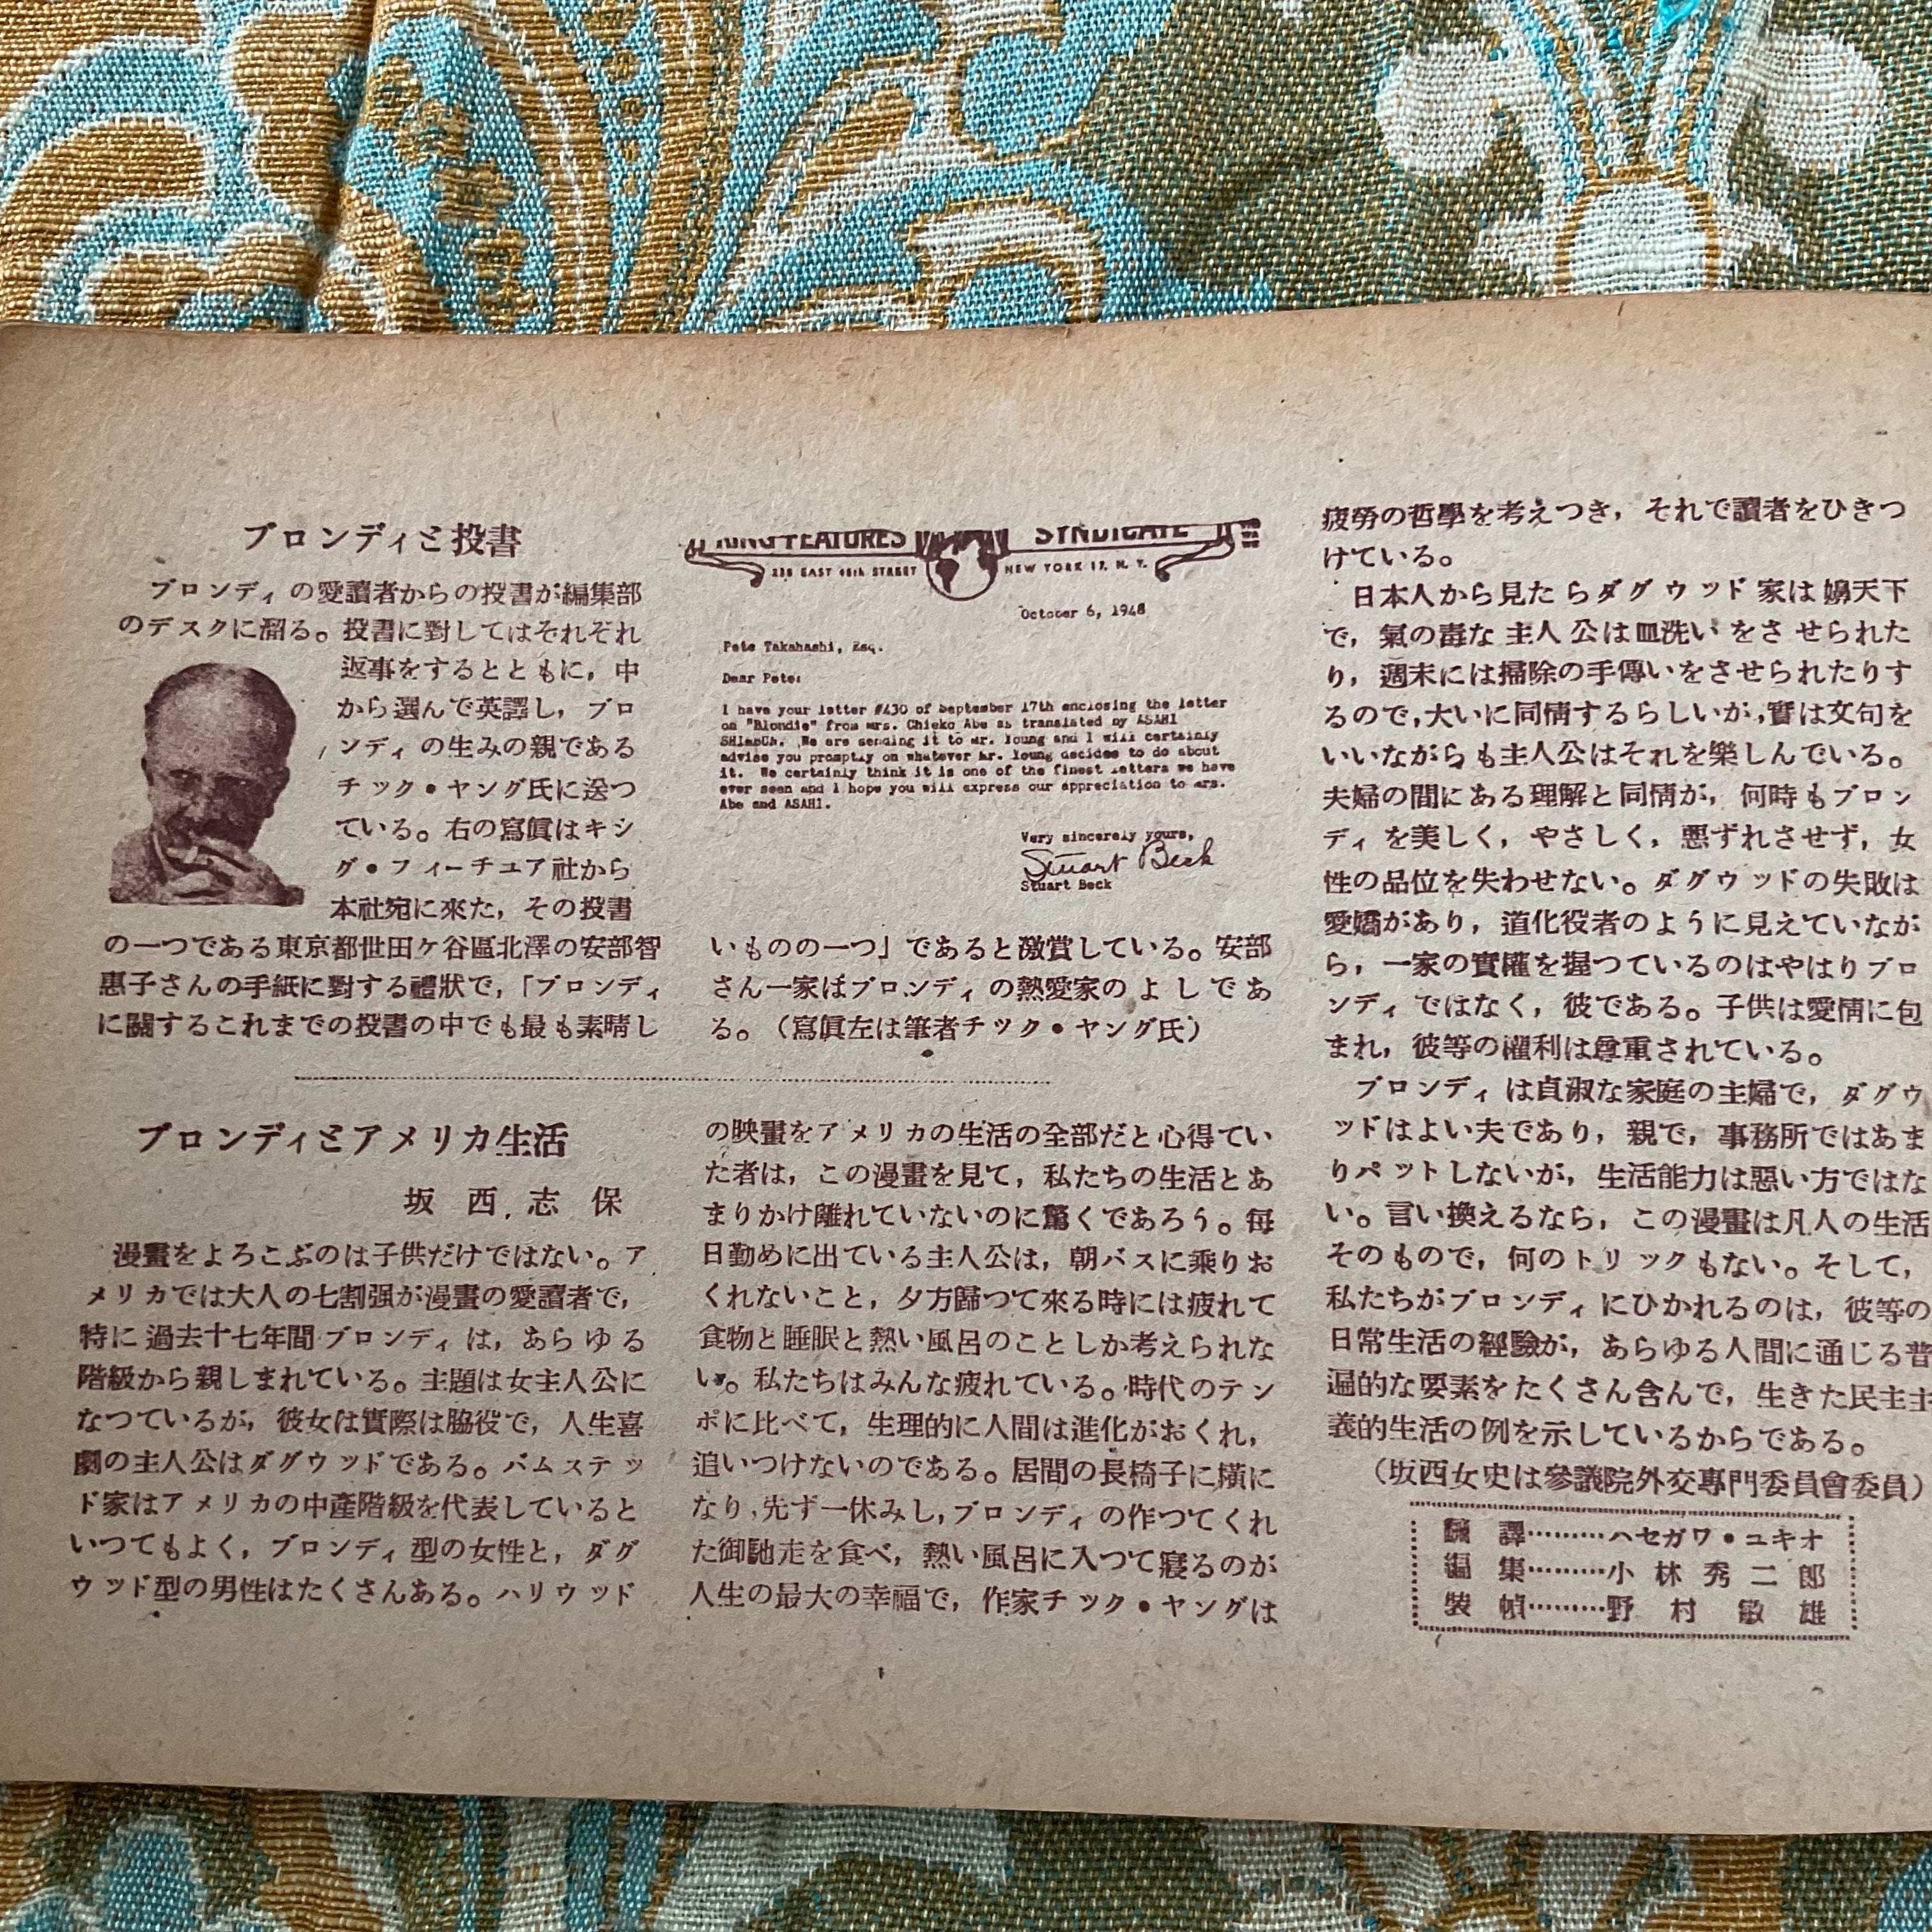 ブロンディと投書
ブロンディの愛讀者からの投書が編集部
のデスクに溜る。投書に對してはそれぞれ
返事をするとともに，中
から選んで英譯し，ブロ
ンディの生みの親である
チック・ヤング氏に送つ
ている。右の寫眞はキン
グ・フィーチュア社から
本社宛に來た，その投書
の一つである東京都世田ケ谷區北澤の安部智
惠子さんの手紙に對する禮狀で，「ブロンディ
に關するこれまでの投書の中でも最も素晴し
KING FEATURES SYNDICATE
235 EAST 45th STREET NEW YORK 17, N. Y.
October 6, 1948
Pete Takahashi, Esq.
Dear Pete:
I have your letter #430 of September 17th enclosing the letter
on "Blondie" from Mrs. Chieko Abe as translated by ASAHI
SHIMBUN. We are sending it to Mr. Young and I will certainly
advise you promptly on whatever Mr. Young decides to do about
it. We certainly think it is one of the finest letters we have
ever seen and I hope you will express our appreciation to Mrs.
Abe and ASAHI.
Very sincerely yours,
Stuart Beck
Stuart Beck
いものの一つ」であると激賞している。安部
さん一家はブロンディの熱愛家のよしであ
る。（寫眞左は筆者チック・ヤング氏）
ブロンディとアメリカ生活
坂西志保
漫畫をよろこぶのは子供だけではない。ア
メリカでは大人の七割强が漫畫の愛讀者で，
特に過去十七年間ブロンディは，あらゆる
階級から親しまれている。主題は女主人公に
なつているが，彼女は實際は脇役で，人生喜
劇の主人公はダグウッドである。バムステッ
ド家はアメリカの中產階級を代表していると
いつてもよく，ブロンディ型の女性と，ダグ
ウッド型の男性はたくさんある。ハリウッド
の映畫をアメリカの生活の全部だと心得てい
た者は，この漫畫を見て，私たちの生活とあ
まりかけ離れていないのに驚くであろう。毎
日勤めに出ている主人公は，朝バスに乘りお
くれないこと，夕方歸つて來る時には疲れて
食物と睡眠と熱い風呂のことしか考えられな
い。私たちはみんな疲れている。時代のテン
ポに比べて，生理的に人間は進化がおくれ，
追いつけないのである。居間の長椅子に橫に
なり，先ず一休みし，ブロンディの作つてくれ
た御馳走を食べ，熱い風呂に入つて寢るのが
人生の最大の幸福で，作家チック・ヤングは
疲勞の哲學を考えつき，それで讀者をひきつ
けている。
日本人から見たらダグウッド家は嬶天下
で，氣の毒な主人公は皿洗いをさせられた
り，週末には掃除の手傳いをさせられたりす
るので，大いに同情するらしいが，實は文句を
いいながらも主人公はそれを樂しんでいる。
夫婦の間にある理解と同情が，何時もブロン
ディを美しく，やさしく，悪ずれさせず，女
性の品位を失わせない。ダグウッドの失敗は
愛嬌があり，道化役者のように見えていなが
ら，一家の實權を握つているのはやはりブロ
ンディではなく，彼である。子供は愛情に包
まれ，彼等の權利は尊重されている。
ブロンディは貞淑な家庭の主婦で，ダグウ
ッドはよい夫であり，親で，事務所ではあま
りパットしないが，生活能力は悪い方ではな
い。言い換えるなら，この漫畫は凡人の生活
そのもので，何のトリックもない。そして，
私たちがブロンディにひかれるのは，彼等の
日常生活の經驗が，あらゆる人間に通じる普
遍的な要素をたくさん含んで，生きた民主主
義的生活の例を示しているからである。
（坂西女史は參議院外交專門委員會委員）
飜譯………ハセガワ・ユキオ
編集………小林秀二郎
裝幀………野村敏雄